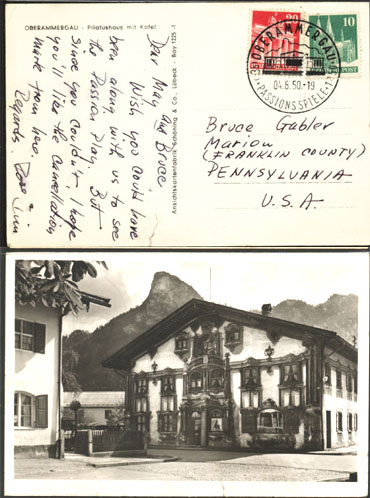 OBERAMMERGAU - Pilatushaus mit Kofel
Dear May and Bruce,
Wish you could have
been along with us to see
the Passion Play. But
since you couldn't, I hope
you'll like the cancellation
mark from here.
Regards,
Ansichtskartenfabrik Schöning & Co., Lübeck - Bay 1325
20
10
POST
OBERAMMERGAU
04.6.50.-19
PASSIONSSPIELE
Bruce Gabler
Marion
(FRANKLIN COUNTY)
PENNSYLVANIA
U.S.A.